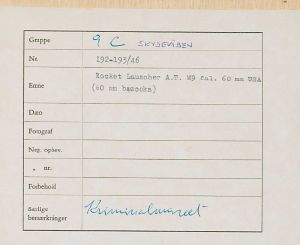 Gruppe 9 C SKYDEVÅBEN
Nr. 192-193/46
Emne Rocket Launcher A.T. M9 Cal. 60 mm USA
(60 mm bazooka)
Dato
Fotograf
Neg. opbev.
„ nr.
Forbehold
Særlige
bemærkninger Kriminalmuseet